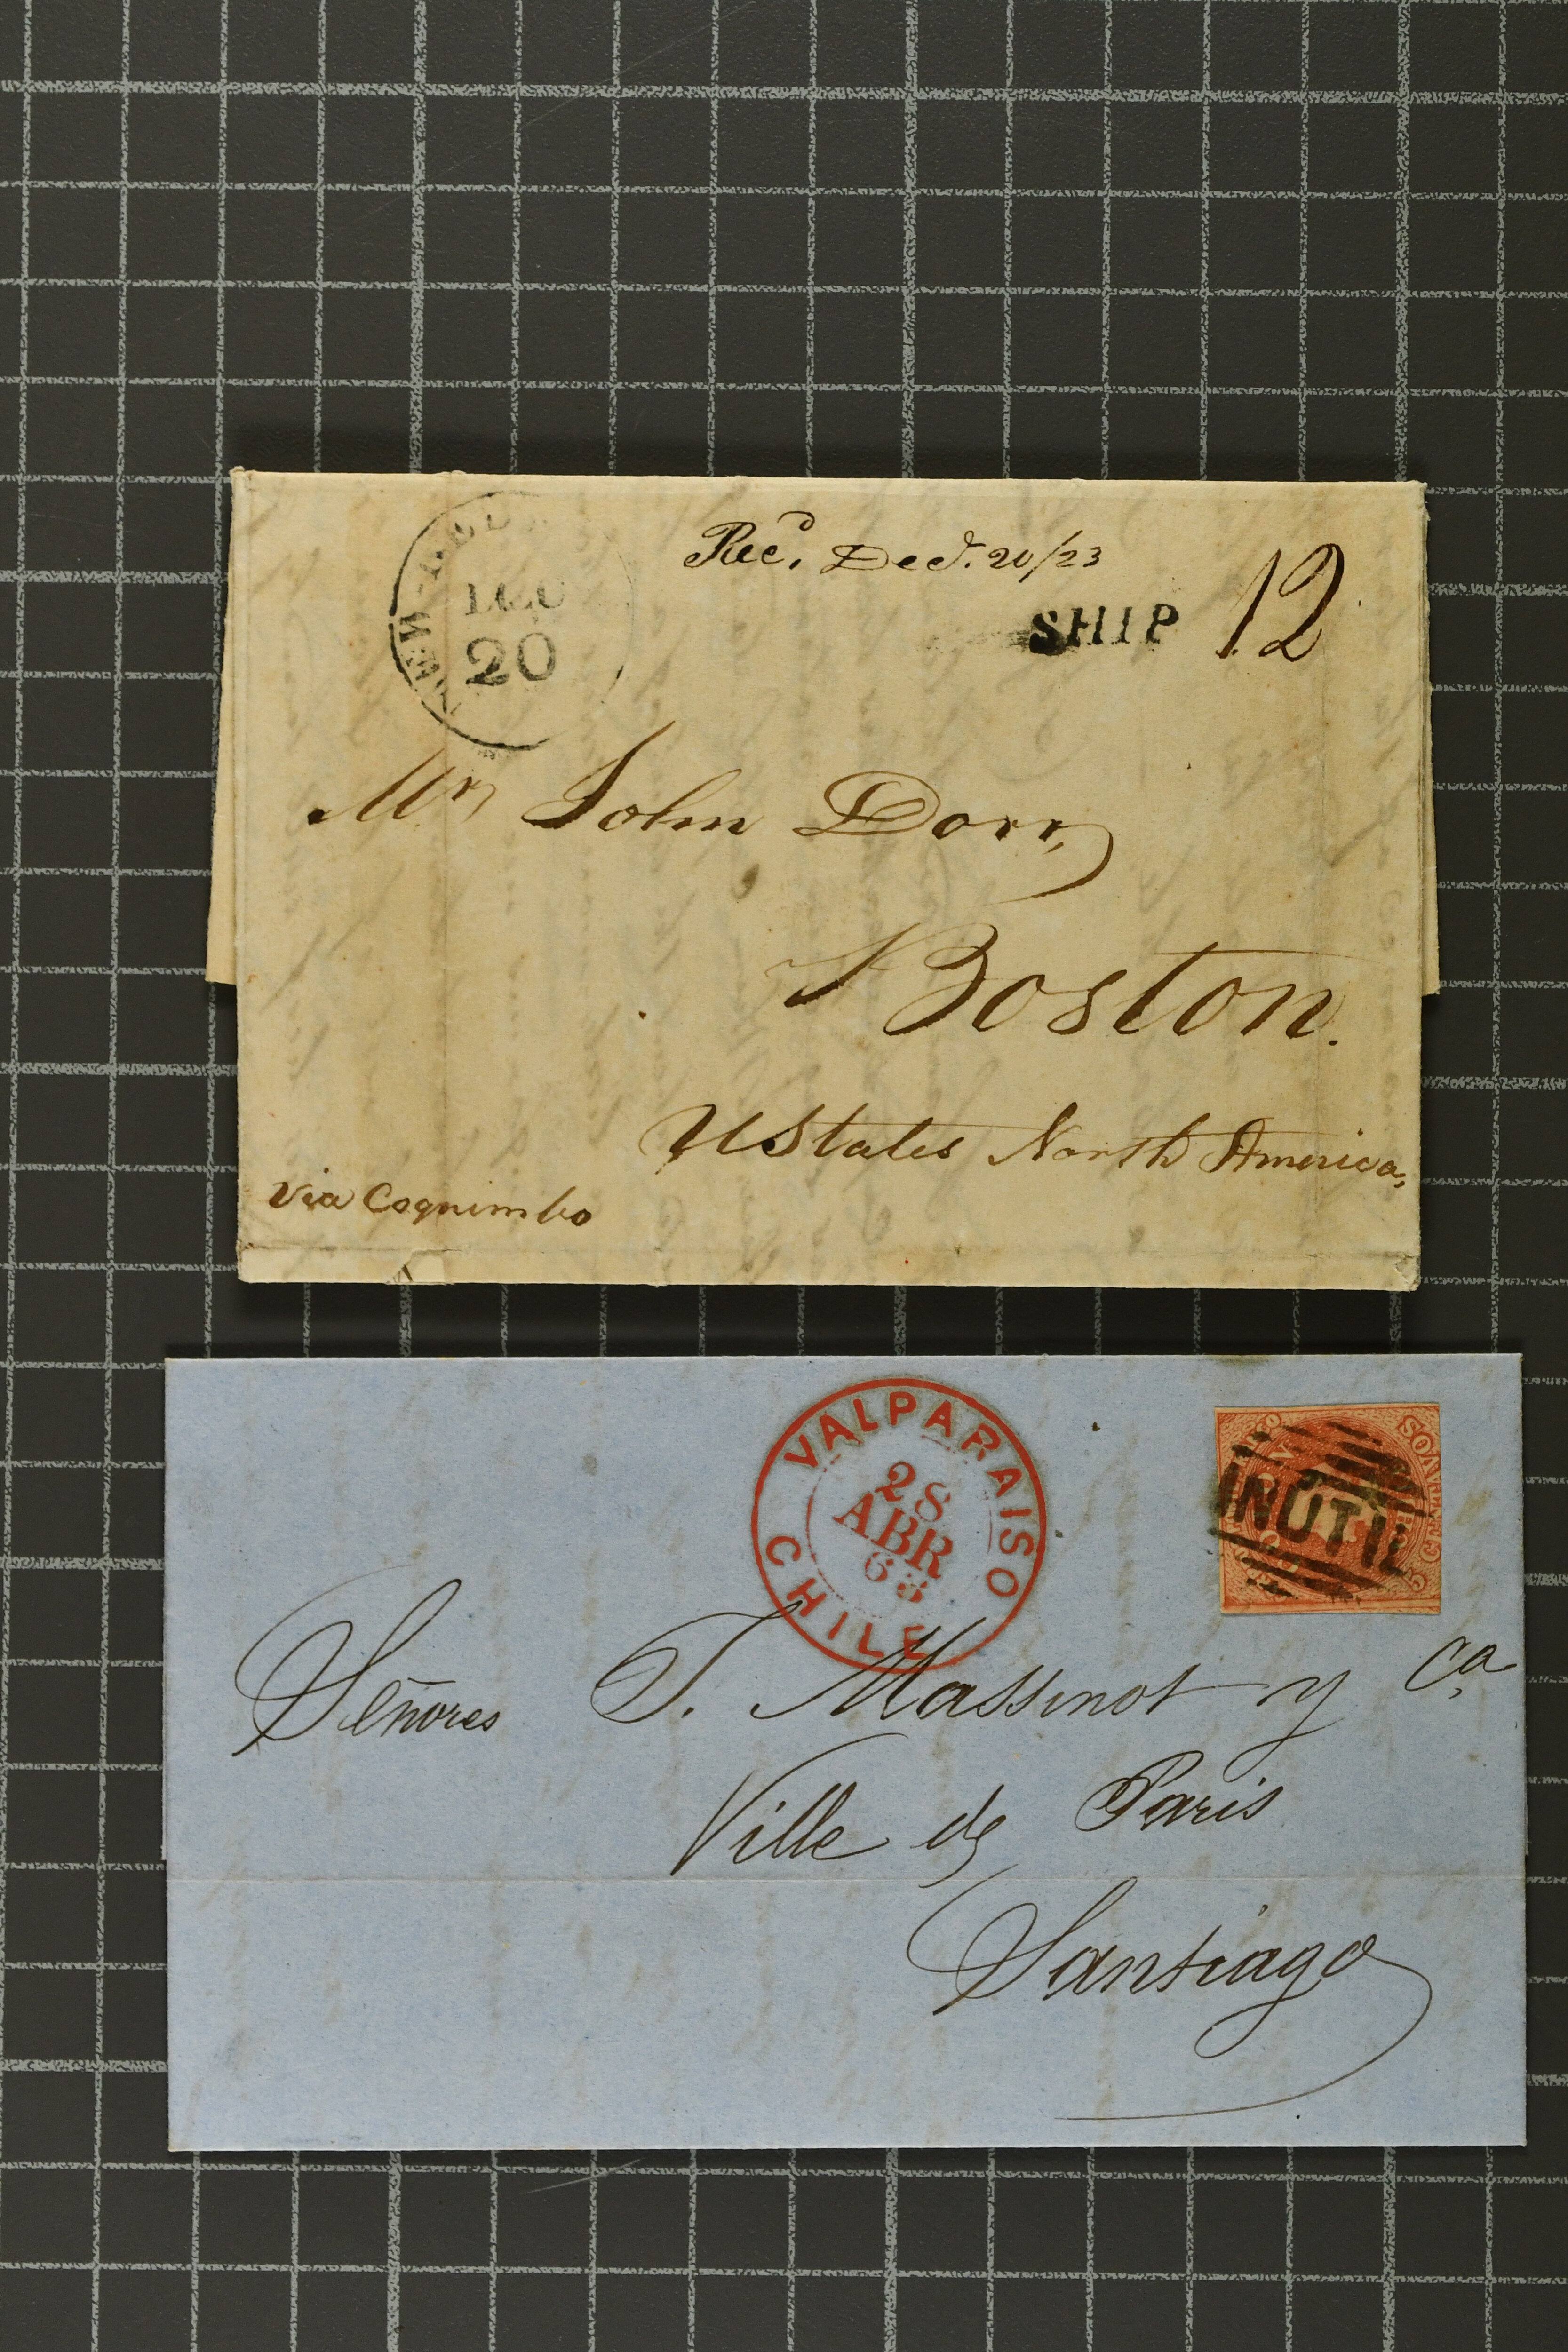 Rec.d Dec. 20/23
20
SHIP 12
Mr John Dorr,
Boston.
UStates North America,
Via Coquimbo
VALPARAISO
28
ABR
63
CHILE
CENTAVOS
INUTIL
Señores T. Massinot y Ca.
Ville de Paris
Santiago